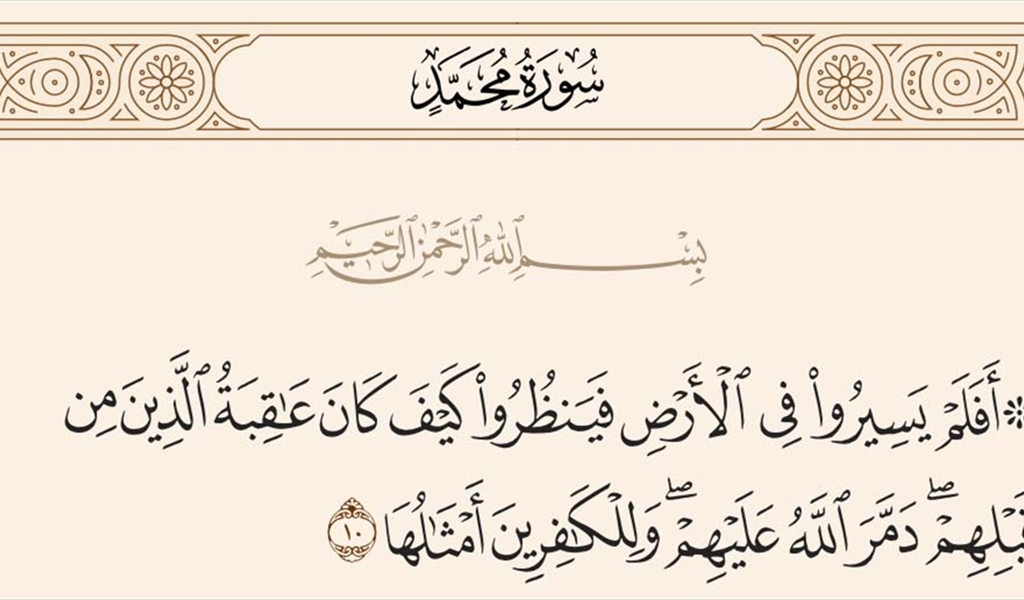 سُورَةُ مُحَمَّدٍ
بِسْمِ ٱللَّهِ ٱلرَّحْمَٰنِ ٱلرَّحِيمِ
۞ أَفَلَمْ يَسِيرُوا۟ فِى ٱلْأَرْضِ فَيَنظُرُوا۟ كَيْفَ كَانَ عَـٰقِبَةُ ٱلَّذِينَ مِن
قَبْلِهِمْ ۖ دَمَّرَ ٱللَّهُ عَلَيْهِمْ ۖ وَلِلْكَـٰفِرِينَ أَمْثَـٰلُهَا ١٠